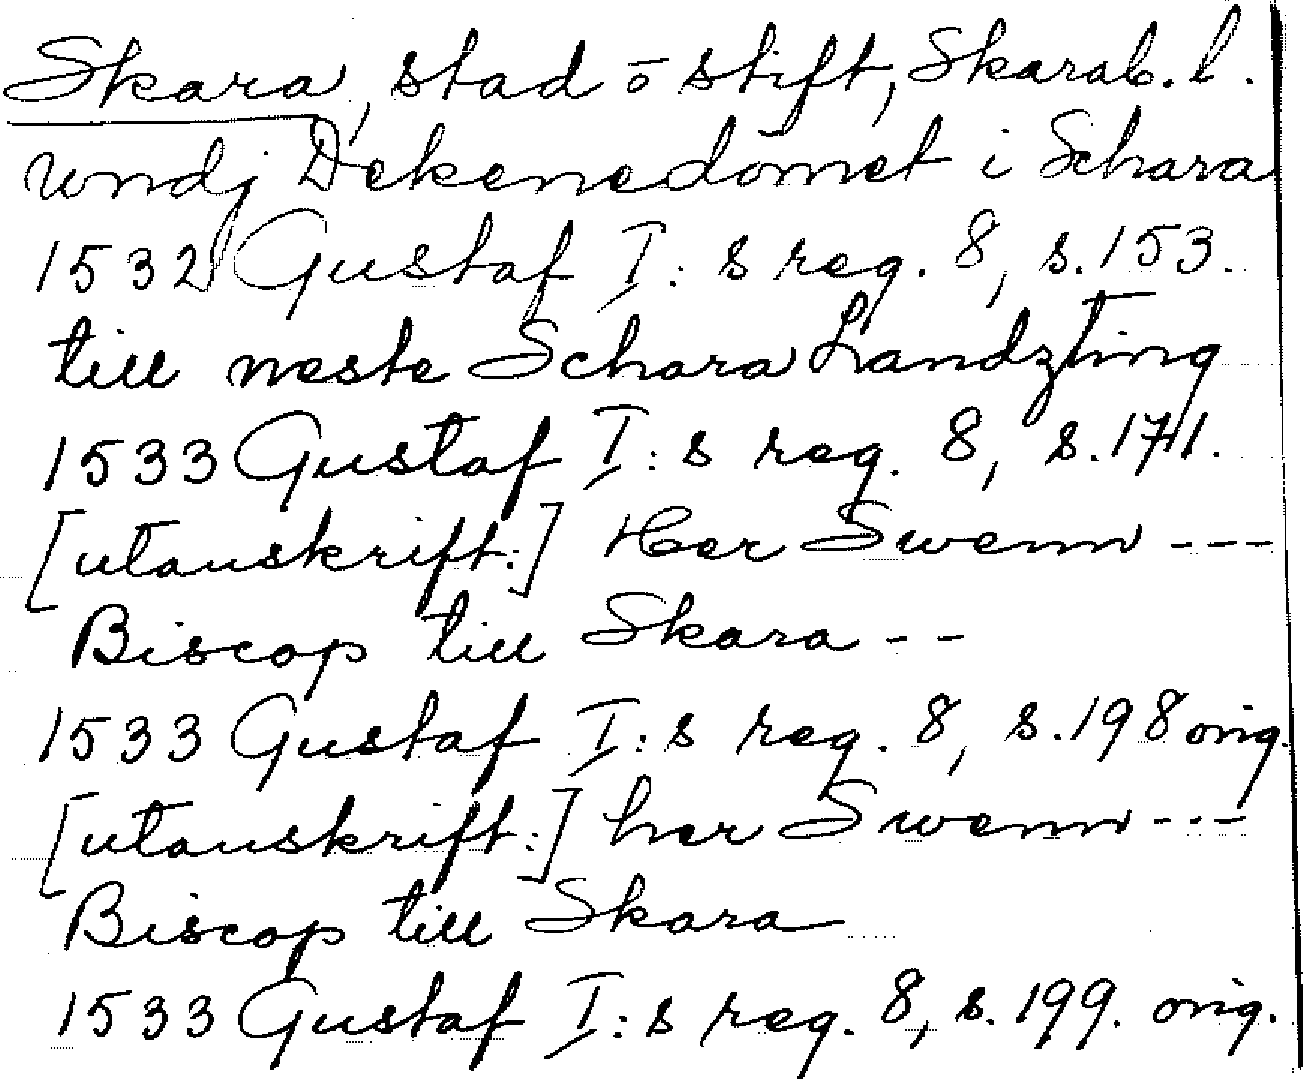 Skara, stad o stift, Skarab. l.
wndj Dekenedömet i Schara
1532 Gustaf I:s reg. 8, s. 153.
till neste Schara Landzting
1533 Gustaf I:s reg. 8, s. 171.
[utanskrift:] Her Swenn ---
Biscop till Skara --
1533 Gustaf I:s reg. 8, s. 198 orig.
[utanskrift:] her Swenn ---
Biscop till Skara
1533 Gustaf I:s reg. 8, s. 199. orig.